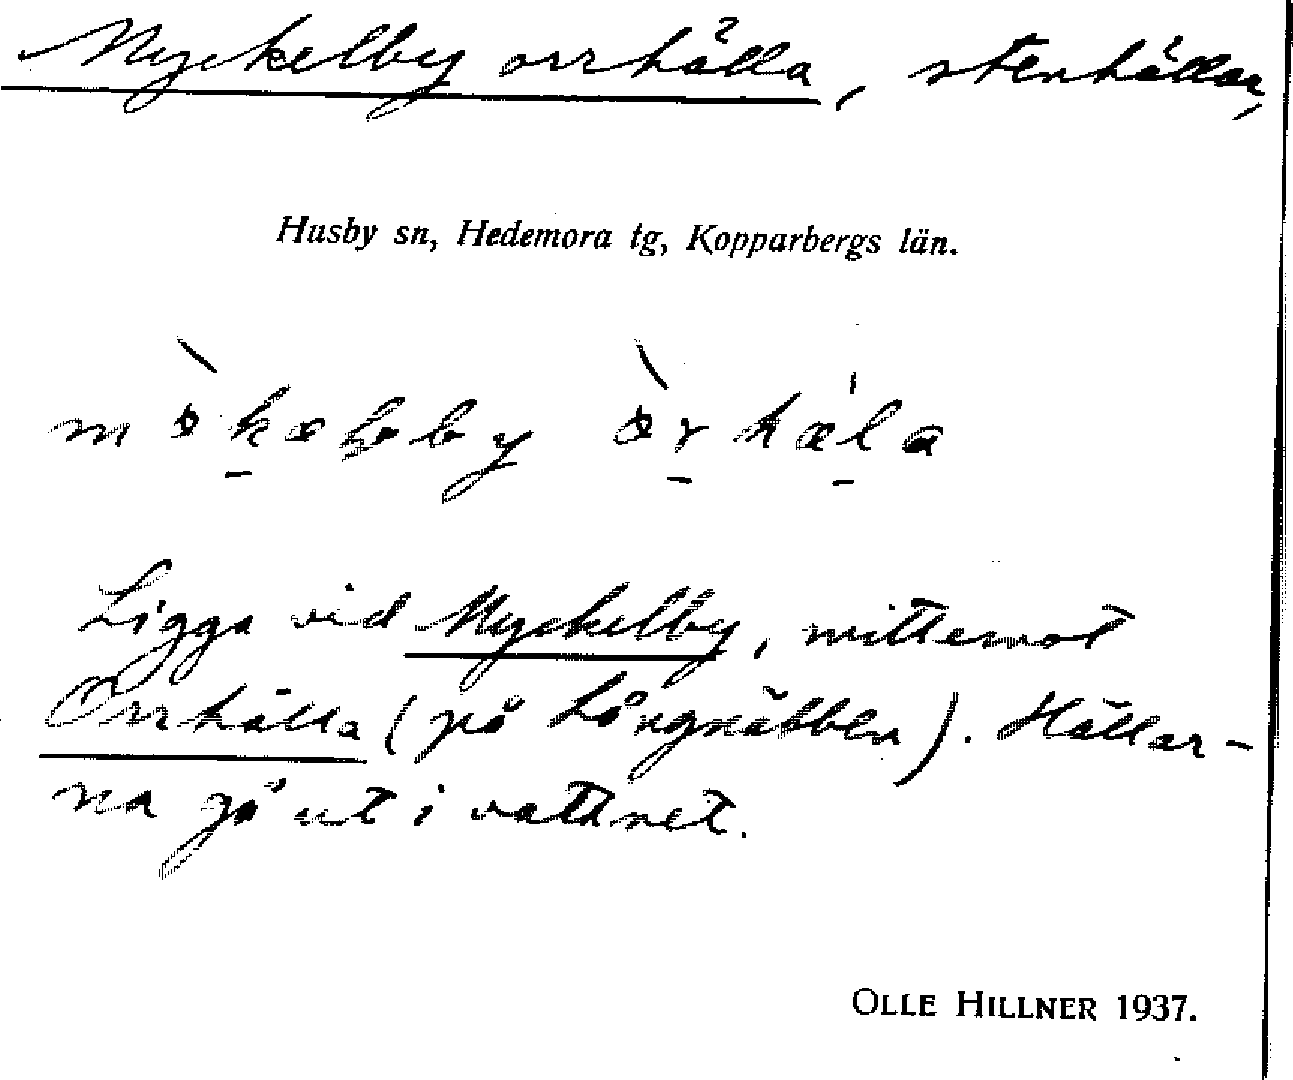 Nyckelby orrhälla, stenhällar,
Husby sn, Hedemora tg, Kopparbergs län.
Ligga vid Nyckelby, mittemot
Orrhälla (på Långnäbben). Hällar-
na gå ut i vattnet.
OLLE HILLNER 1937.